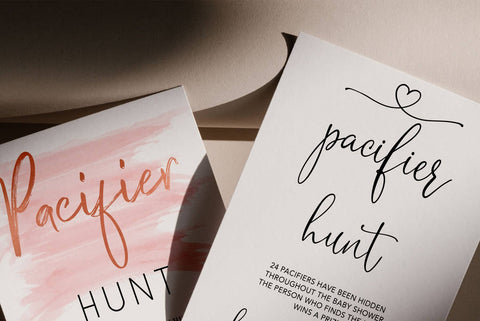 Pacifier
HUNT
pacifier
hunt
24 PACIFIERS HAVE BEEN HIDDEN
THROUGHOUT THE BABY SHOWER
THE PERSON WHO FINDS THE
WINS A